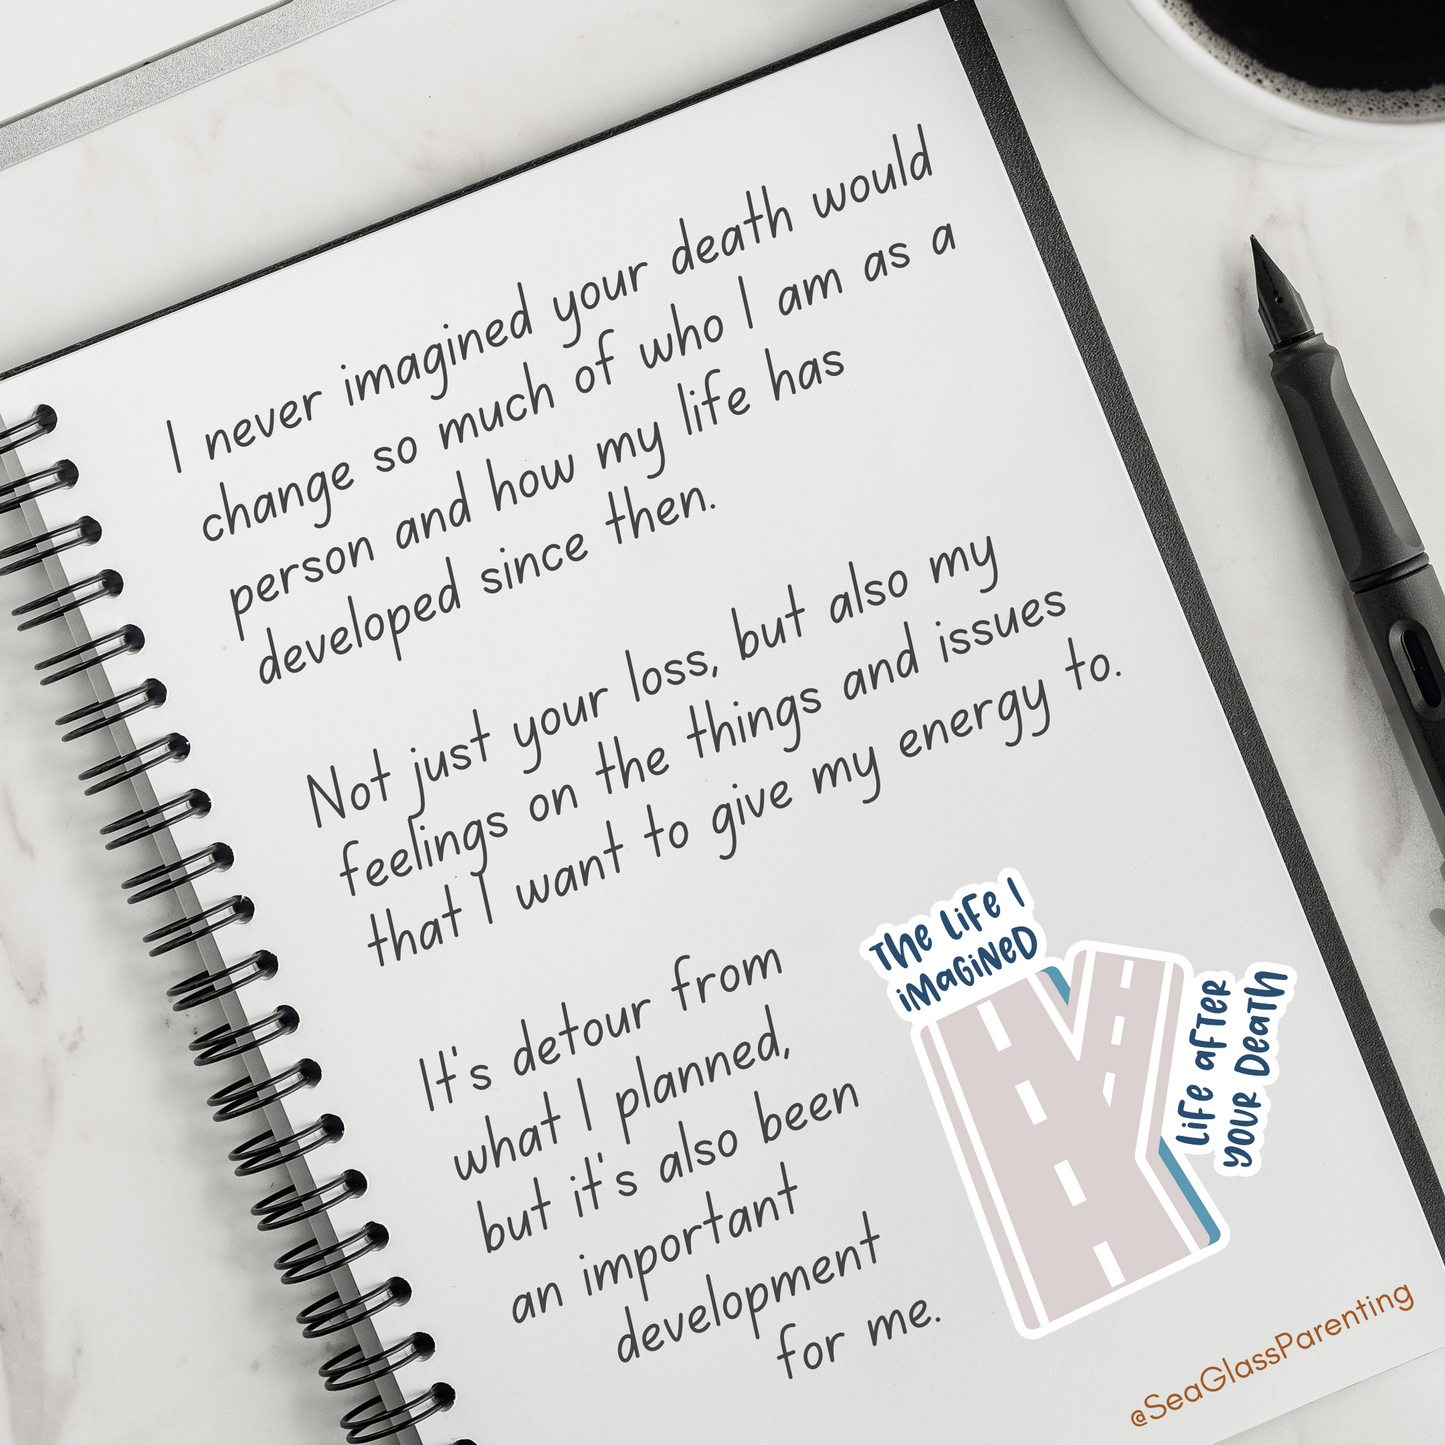 I never imagined your death would
change so much of who I am as a
person and how my life has
developed since then.
Not just your loss, but also my
feelings on the things and issues
that I want to give my energy to.
It's detour from
what I planned,
but it's also been
an important
development
for me.
The Life I
iMaGiNeD
Life after
your Death
@SeaGlassParenting